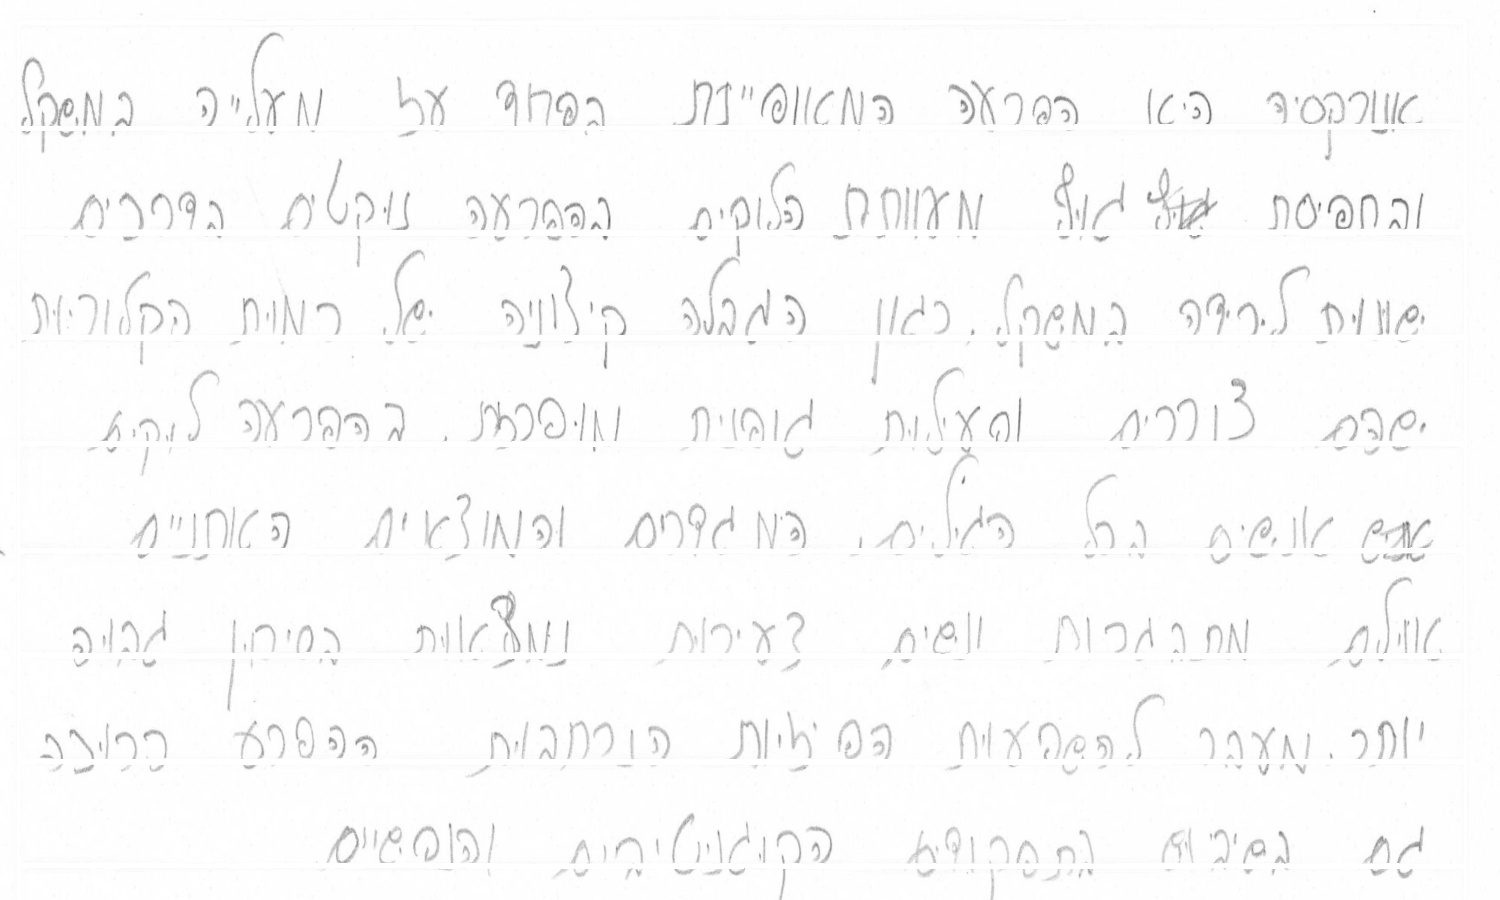 אנורקסיה היא הפרעה המאופיינת בפחד עז מעלייה במשקל
ובתפיסת גוף מעוותת הלוקים בהפרעה נוקטים בדרכים
שונות לירידה במשקל, כגון הגבלה קיצונית של כמות הקלוריות
שהם צורכים ופעילות גופנית מופרזת. בהפרעה לוקים
אנשים בכל הגילים, המגדרים והמוצאים האתניים
אולם מתבגרות ונשים צעירות נמצאות בסיכון גבוה
יותר. מעבר להשפעות הפיזיות הנרחבות ההפרעה כרוכה
גם בשיבוש בתפקודים הקוגניטיביים והנפשיים